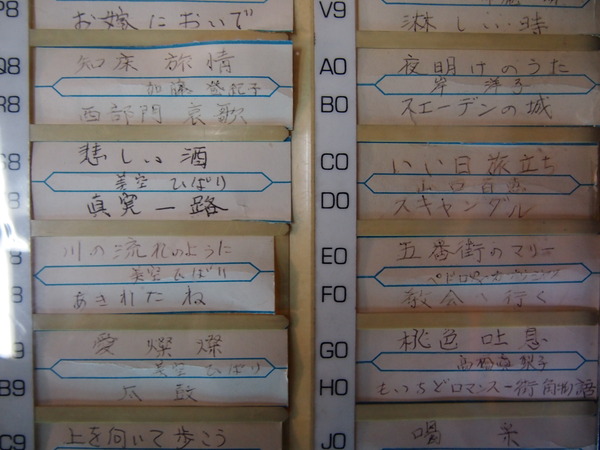 P8
お嫁においで
Q8
知床旅情
加藤登紀子
R8
西部門哀歌
S8
悲しい酒
美空ひばり
8
真実一路
8
川の流れのように
美空ひばり
8
あきれたね
9
愛燦燦
美空ひばり
B9
太鼓
C9
上を向いて歩こう
V9
淋しい時
A0
夜明けのうた
岸洋子
B0
スエーデンの城
C0
いい日旅立ち
山口百恵
D0
スキャンダル
E0
五番街のマリー
F0
教会へ行く
G0
桃色吐息
高橋真梨子
H0
もっちどロマンス一街角物語
J0
喝采